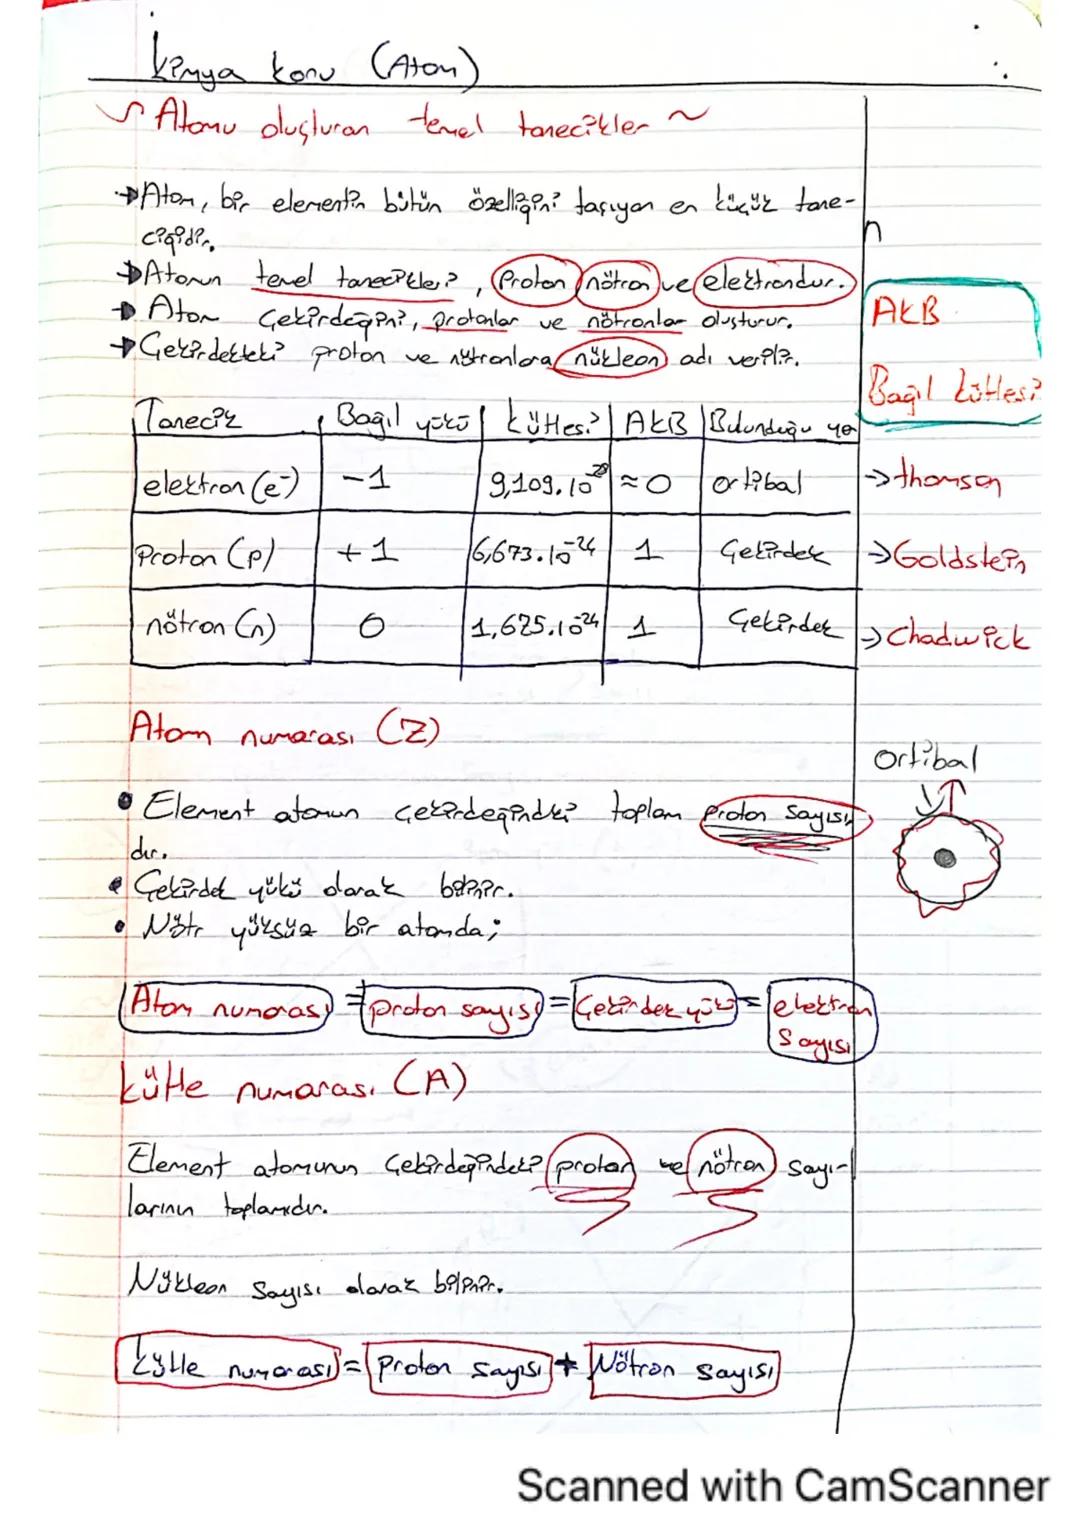 Kimya konu (Atom)
~ Atomu oluşturan temel tanecikler ~
→ Atom, bir elementin bütün özelliğini taşıyan en küçük tane-
ciğidir.
→ Atomun temel tanecikleri, Proton nötron ve elektrondur.
→ Atom Çekirdeğini, protonlar ve nötronlar oluşturur.
→ Çekirdekteki proton ve nötronlara nükleon adı verilir.
n
AKB
Bağıl kütlesi
Tanecik Bağıl yükü kütlesi AKB Bulunduğu yer
elektron (e⁻) -1 9,109.10⁻²⁸ ≈0 ortibal → thomson
Proton (p) +1 6,673.10⁻²⁴ 1 Çekirdek → Goldstein
nötron (n) 0 1,675.10⁻²⁴ 1 Çekirdek → Chadwick
Atom numarası (Z)
Ortibal
• Element atomun çekirdeğindeki toplam proton sayısı
dır.
• Çekirdek yükü olarak bilinir.
• Nötr yüksüz bir atomda;
Atom numarası = proton sayısı = Çekirdek yükü = elektron
Sayısı
kütle numarası (A)
Element atomunun Çekirdeğindeki proton ve nötron sayı-
larının toplamıdır.
Nükleon Sayısı olarak bilinir.
kütle numarası = Proton Sayısı + Nötron Sayısı
Scanned with CamScanner